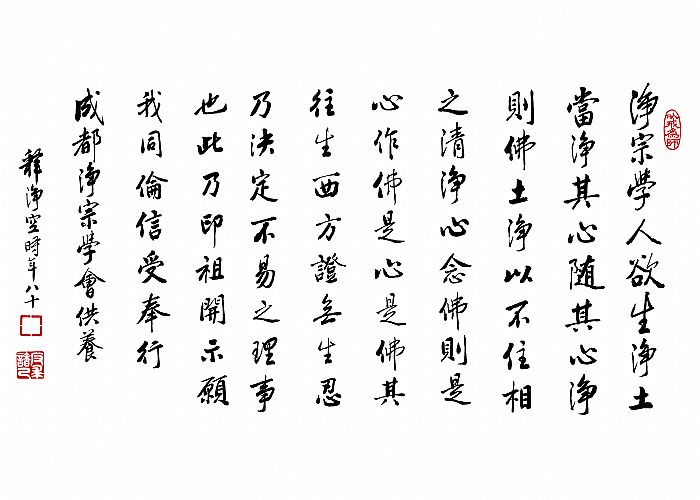 淨宗學人欲生淨土
當淨其心随其心淨
則佛土淨以不住相
之清淨心念佛則是
心作佛是心是佛其
往生西方證無生忍
乃決定不易之理事
也此乃印祖開示願
我同倫信受奉行
成都淨宗學會供養
釋淨空時年八十